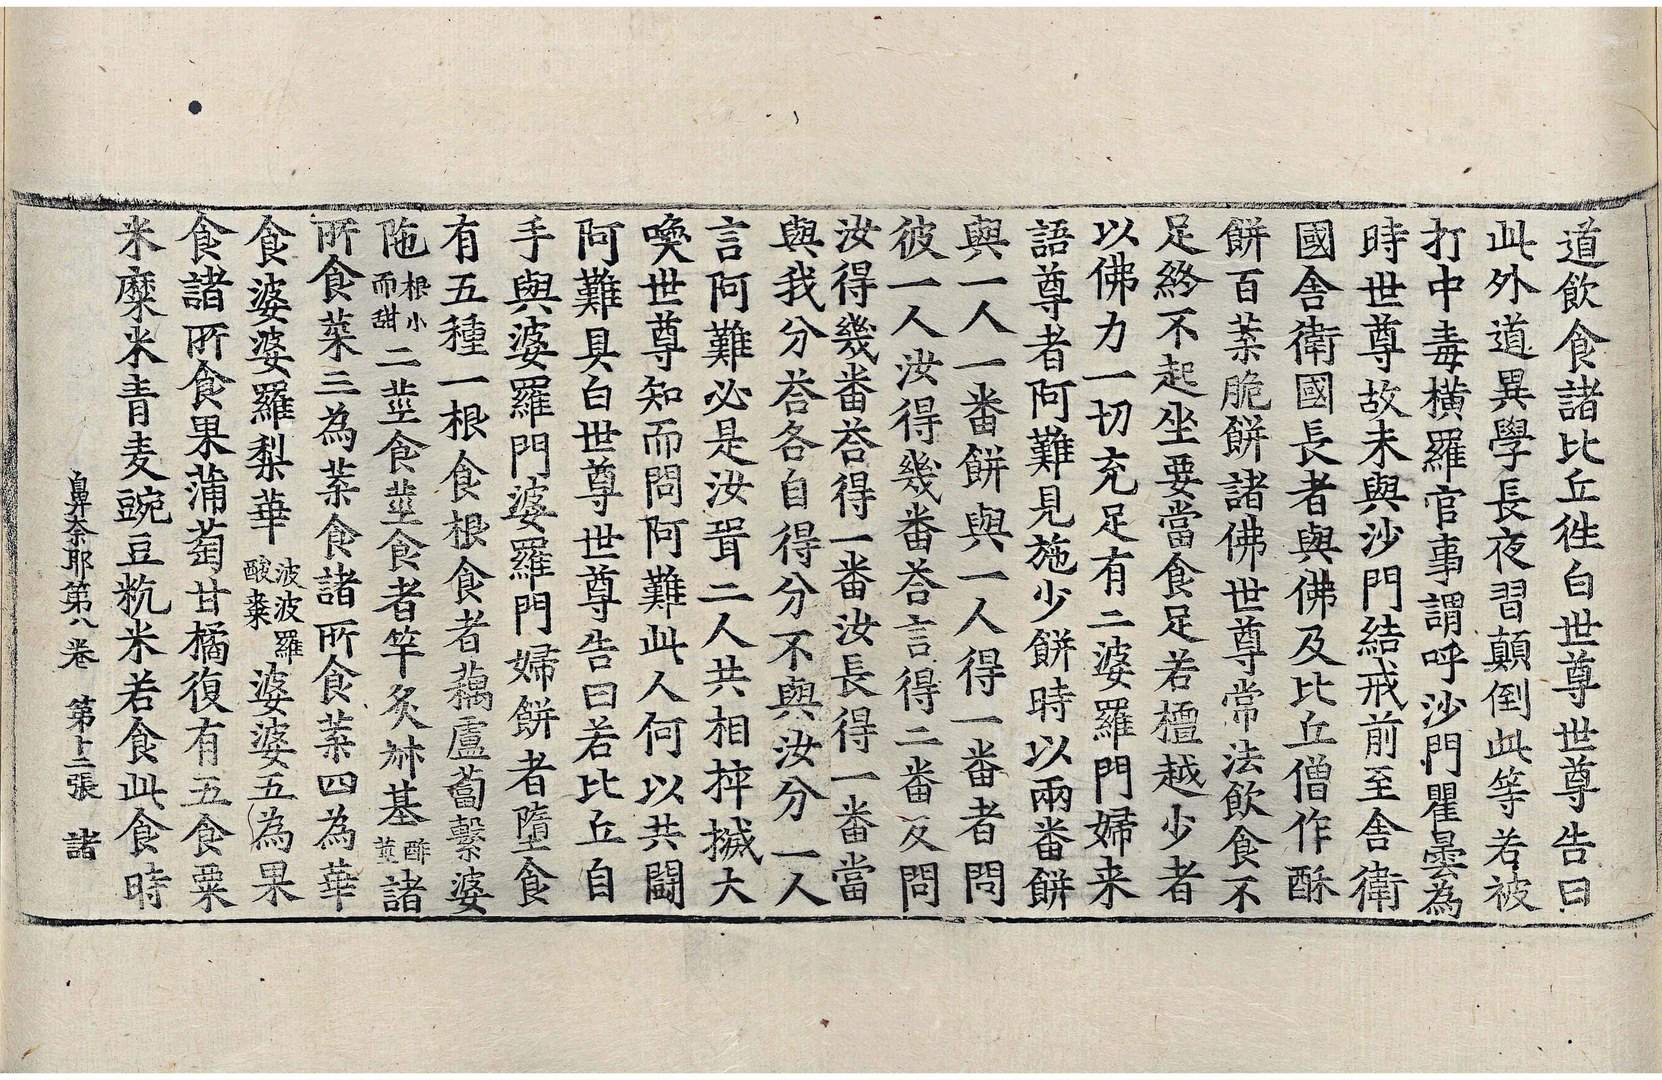 道飲食諸比丘徃白世尊世尊告曰
此外道異學長夜習顛倒此等若被
打中毒橫羅官事謂呼沙門瞿曇為
時世尊故未與沙門結戒前至舎衛
國舎衛國長者與佛及比丘僧作酥
餅百葉脆餅諸佛世尊常法飲食不
足終不起坐要當食足若檀越少者
以佛力一切充足有二婆羅門婦来
語尊者阿難見施少餅時以兩番餅
與一人一番餅與一人得一番者問
彼一人汝得幾番荅言得二番反問
汝得幾番荅得一番汝長得一番當
與我分荅各自得分不與汝分一人
言阿難必是汝聟二人共相捽搣大
喚世尊知而問阿難此人何以共鬪
阿難具白世尊世尊告曰若比丘自
手與婆羅門婆羅門婦餅者墮食
有五種一根食根食者藕蘆蔔繫婆
陁根小而甜二莖食莖食者竿炙菻基酢莖諸
所食葉三為葉食諸所食葉四為華
食婆婆羅梨華波波羅酸棗婆婆五為果
食諸所食果蒲萄甘橘復有五食粟
米糜米青麦豌豆秔米若食此食時
鼻奈耶第八卷 第十二張 諸